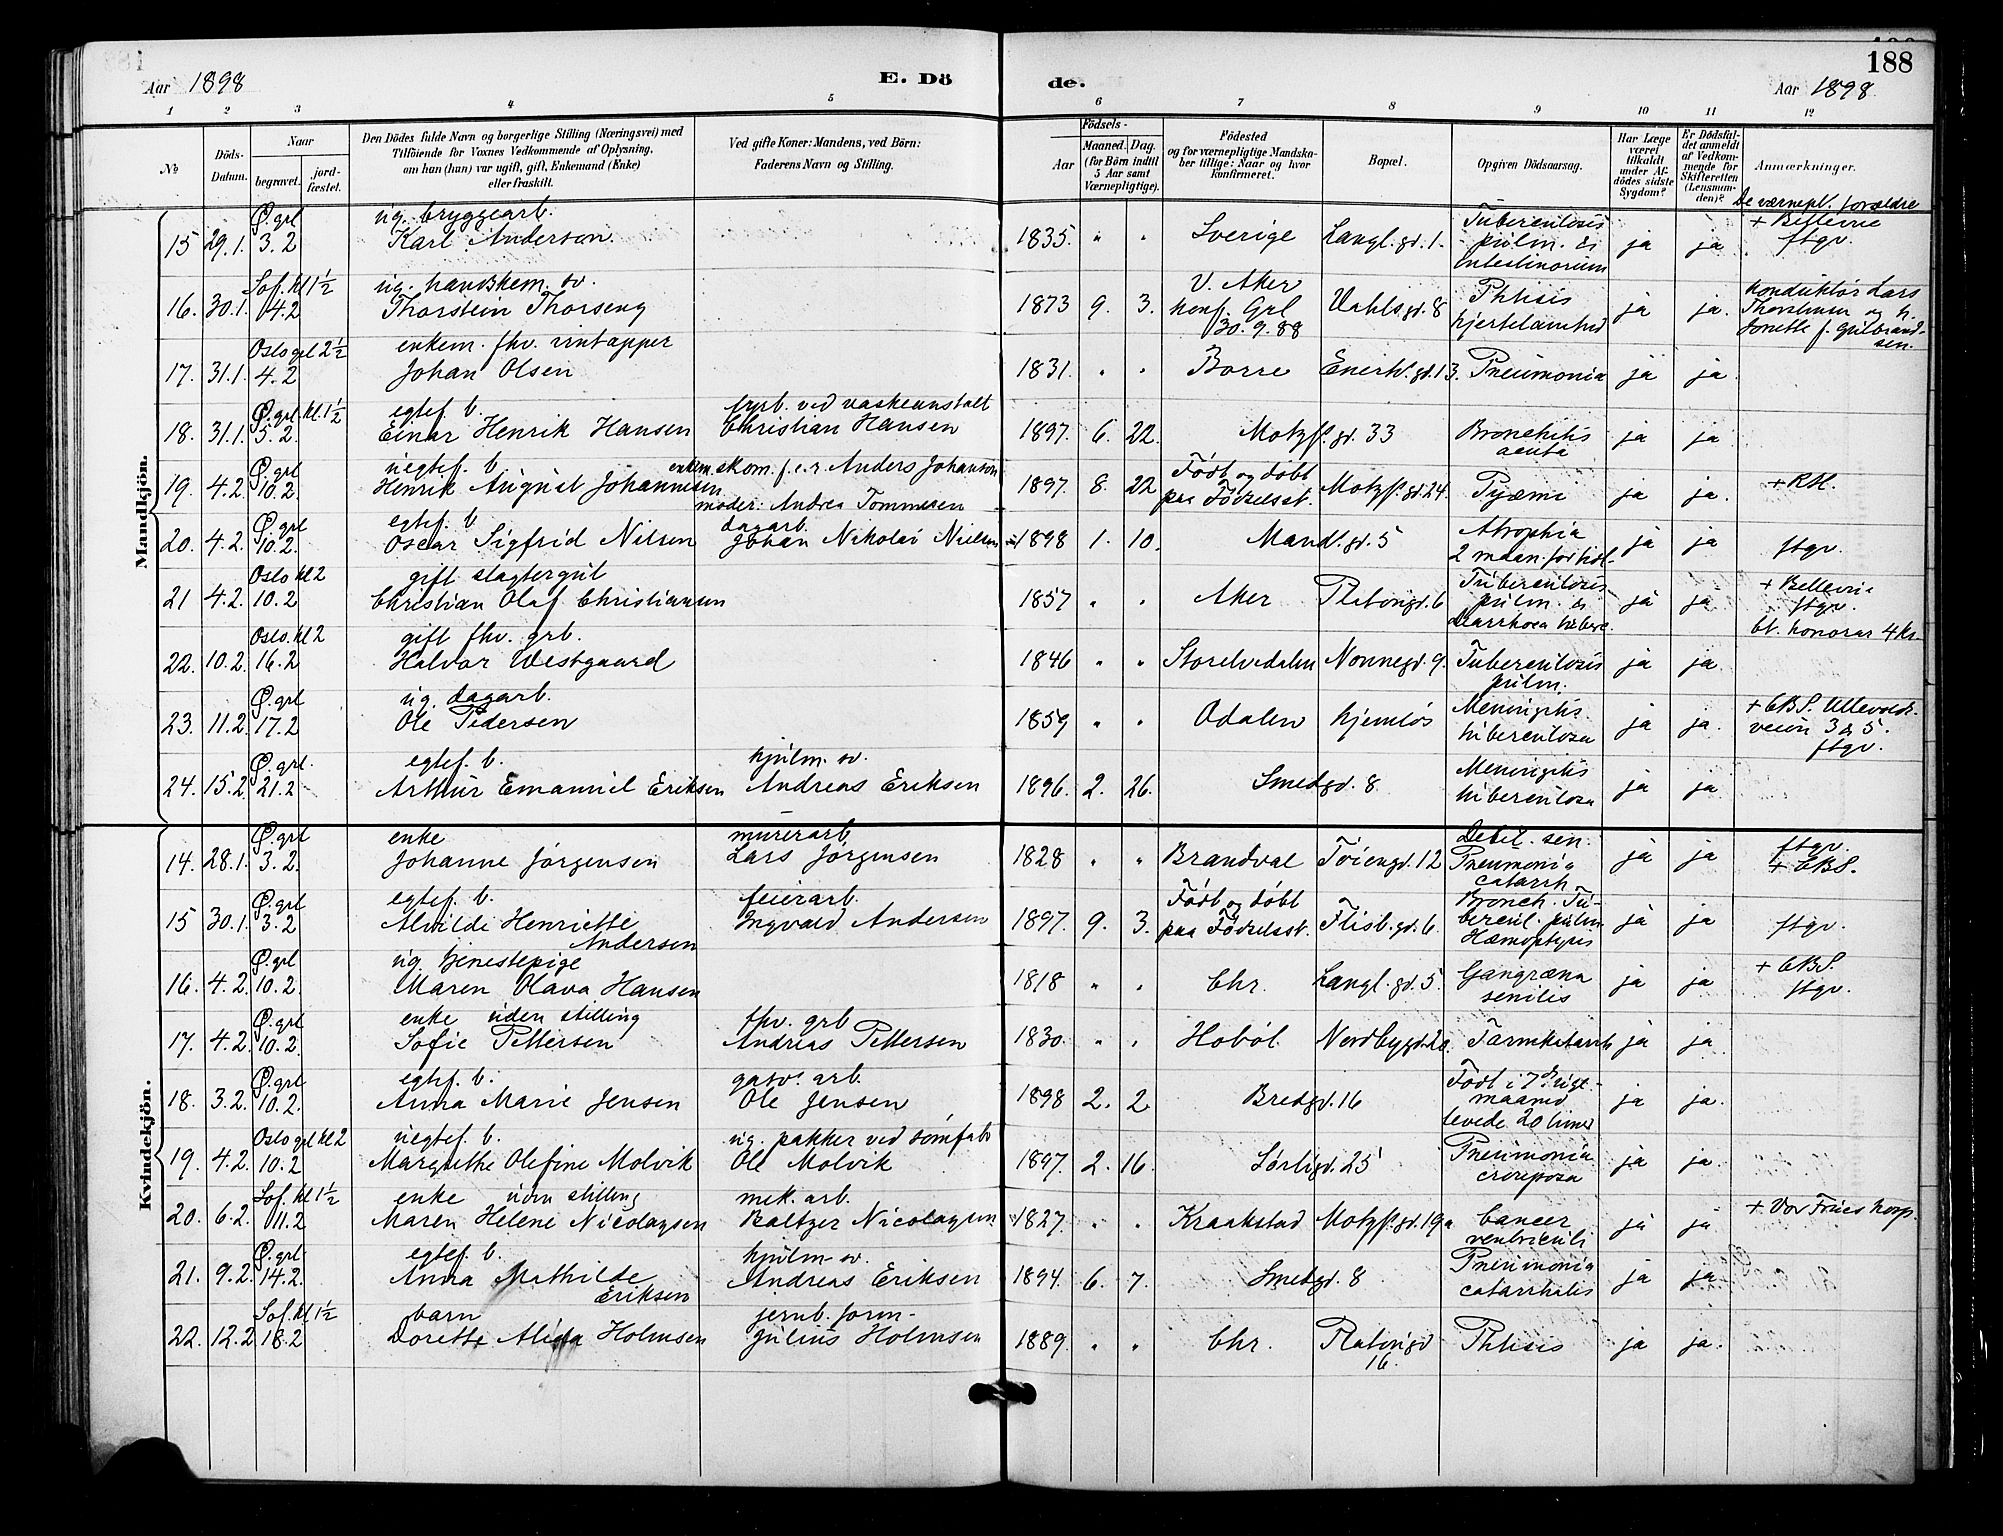 Aar 1898 E. Dö de. 188
Aar 1898
1 2 3 4 5 6 7 8 9 10 11 12
№ Döds-Datum. Naar begravet. jordfæstet. Den Dödes fulde Navn og borgerlige Stilling (Næringsvei) med Tilföiende for Voxnes Vedkommende af Oplysning, om han (hun) var ugift, gift, Enkemand (Enke) eller fraskilt. Ved gifte Koner: Mandens, ved Börn: Faderens Navn og Stilling. Födsels- Aar Maaned. Dag. (for Börn indtil 5 Aar samt Værnepligtige). Födested og for værnepligtige Mandskaber tillige: Naar og hvor konfirmeret. Bopæl. Opgiven Dödsaarsag. Har Læge været tilkaldt under Afdödes sidste Sygdom? Er Dödsfaldet anmeldt af Vedkommende for Skifteretten (Lensmanden)? Anmærkninger.
De værnepl. forældre
Mandkjön.
15 29.1. Ø. grl 3.2 ug. bryggearb. Karl Anderson. 1835. " " Sverige Langl. gd. 1. Tuberculosis pulm. & intestinorum ja ja + Bellevue ftgv.
16. 30.1. Sof. kl 1½ 4.2 ug. handskem. sv. Thorstein Thorseng 1873 9. 3. V. Aker konf. Grl 30.9.88 Vahls. gd. 8 Phtisis hjertelamhed ja ja. konduktør Lars Thorstensen og h. Jonette f. Gulbrandsen.
17. 31.1. Oslo grl 2½ 4.2 enkem. fhv. vintapper Johan Olsen 1831. " " Borre Enerh. gd. 13. Pneumonia ja ja.
18. 31.1. Ø. grl kl. 1½ 5.2. egtef. b. Einar Henrik Hansen fyrb. ved vaskeanstalt Christian Hansen 1897. 6. 22. Motzf. gd. 33 Bronchitis acuta ja ja
19. 4.2. Ø. grl 10.2. uegtef. b. Henrik August Johannesen enkem. skom. f.e.r. Anders Johanson moder: Andrea Tommesen 1897. 8. 22 Født og døbt paa Fødselsst. Motzf. gd. 24. Pyæmi ja ja. + RH.
20. 4.2. Ø. grl 10.2. egtef. b. Oscar Sigfrid Nilsen dagarb. Johan Nikolai Nielsen 1898 1. 10. Mandl. gd. 5 Atrophia 2 maan. for tidl. ja ja ftgv.
21 4.2. Oslo kl 2 10.2 gift slagtergut Christian Olaf Christiansen 1857 " " Aker Platousgd. 6 Tuberculosis pulm. & Diarrhoea tuberc. ja ja + Bellevue ftgv.
22. 10.2. Oslo. kl 2 16.2 gift fhv. grb. Halvor Westgaard 1846 " " Storelvedalen Nonnegd. 9. Tuberculosis pulm. ja ja. bt. honorar 4 kr.
23. 11.2. Ø. grl 17.2 ug. dagarb. Ole Pedersen 1859 " " Odalen hjemløs Meningitis tuberculosa ja ja. + CBS. Ullevoldsveien 3 & 5. ftgv.
24. 15.2. Ø. grl. 21.2 egtef. b. Arthur Emanuel Eriksen hjulm. sv. Andreas Eriksen 1896. 2. 26. Smedgd. 8 Meningitis tuberculosa ja ja
Kvindekjön.
14. 28.1. Ø. grl 3.2. enke Johanne Jørgensen murerarb. Lars Jørgensen 1828 " " Brandval Tøiengd. 12 Debil. sen. Pneumonia catarrh. ja ja ftgv. + CBS.
15 30.1. Ø. grl 3.2 egtef. b. Alvilde Henriette Andersen feierarb. Ingvald Andersen 1897. 9. 3. Født og døbt paa Fødselsst. Flisb. gd. 6. Bronch. Tubercul. pulm Hæmoptysis ja ja ftgv.
16. 4.2. Ø. grl 10.2. ug. tjenestepige Maren Olava Hansen 1818 " " Chr. Langl. gd. 5. Gangræna senilis ja ja + CBS. ftgv.
17. 4.2. Ø. grl 10.2. enke uden stilling Sofie Pettersen fhv. grb Andreas Pettersen 1830. " " Hobøl Nordbygd. 20. Tarmkatarrh ja ja.
18. 3.2. Ø. grl 10.2. egtef. b. Anna Marie Jensen gasv. arb. Ole Jensen 1898 2. 2 Bredgd. 16 Født i 7de svgs. maaned levede 20 timer ja ja.
19. 4.2. Oslo grl kl 2 10.2 uegtef. b. Margrethe Olefine Molvik ug. pakker ved sømfab. Ole Molvik 1897. 2. 16. Sørligd. 25 Pneumonia crouposa ja ja.
20. 6.2. Sof. kl 1½ 11.2 enke uden stilling Maren Helene Nicolaysen mek. arb. Baltzer Nicolaysen 1827. " " Kraakstad Motzf. gd. 19a Cancer ventriculi ja ja + Vor Frues hosp.
21. 9.2. Ø. grl 14.2. egtef. b. Anna Mathilde Eriksen hjulm. sv. Andreas Eriksen 1894. 6. 7. Smedgd. 8 Pneumonia catarrhalis ja ja
22. 12.2 Sof. kl 1½ 18.2 barn Dorette Alida Holmsen jernb. form. Julius Holmsen 1889. " " Chr. Platousgd 16. Phtisis ja ja.